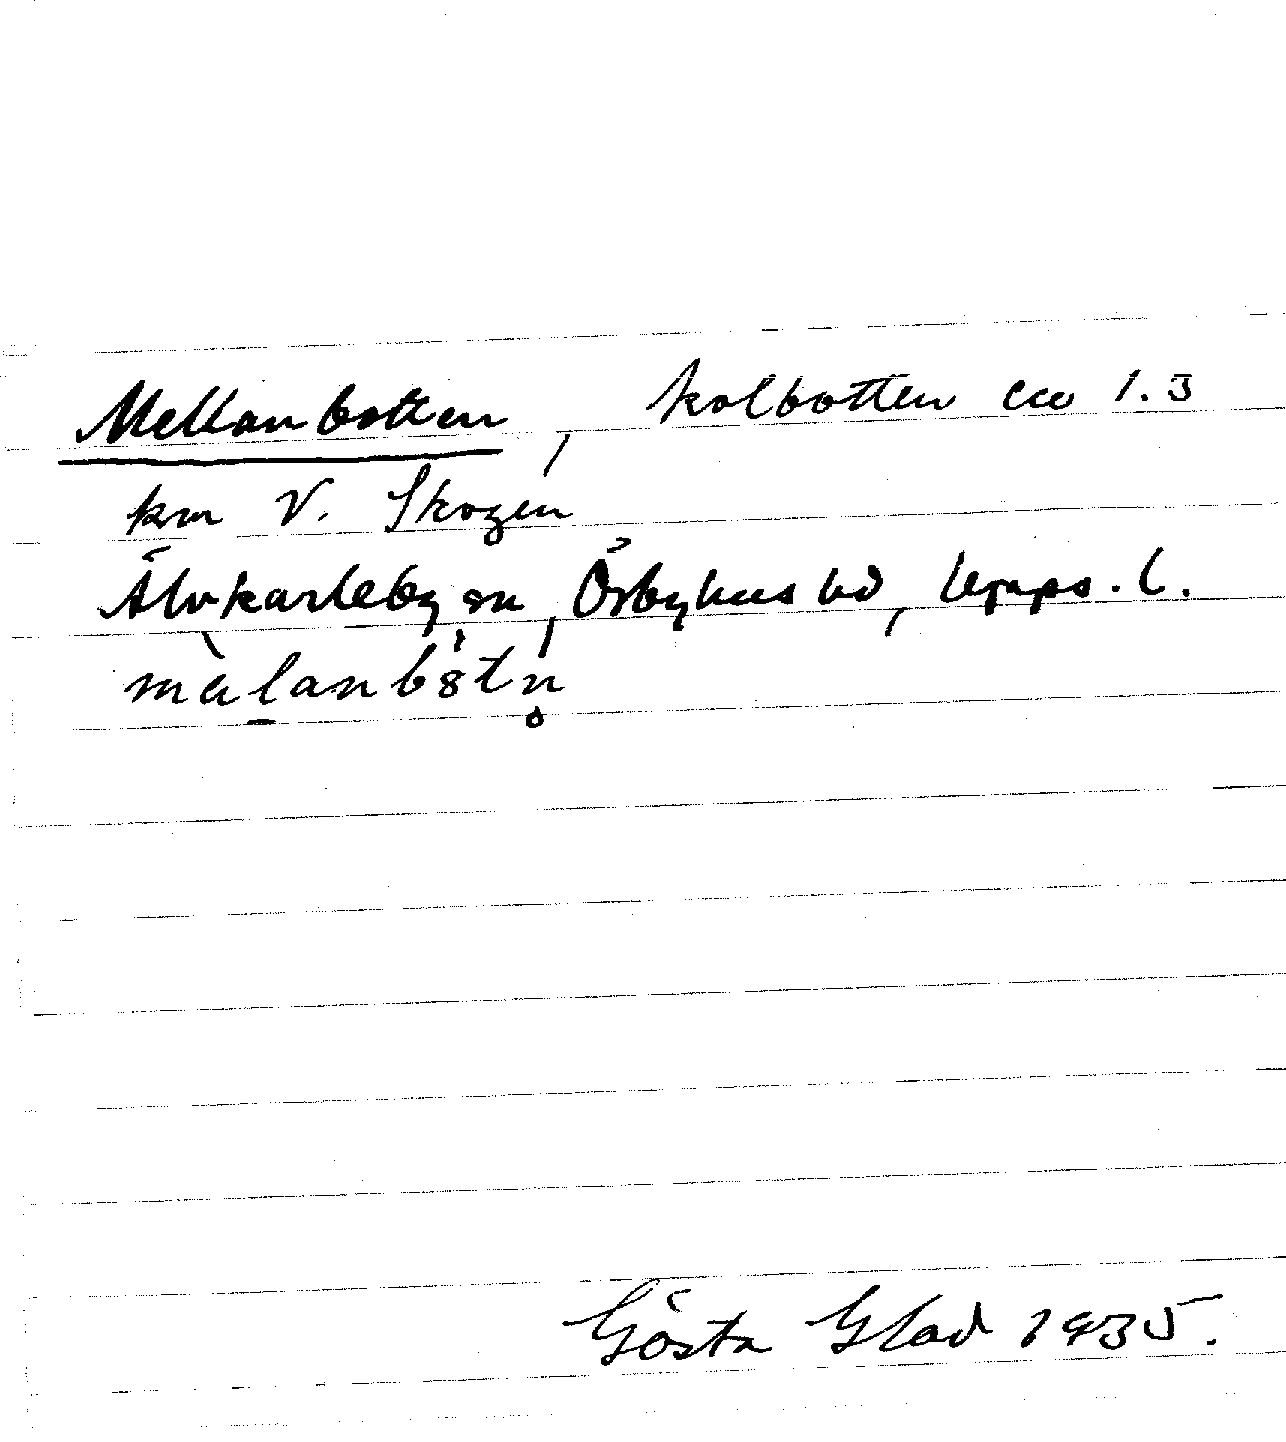 Mellanbotten, kolbotten ca 1.3
km V. Skogen
Älvkarleby sn, Örbyhus hd, Upps. l.
Gösta Glad 1935.